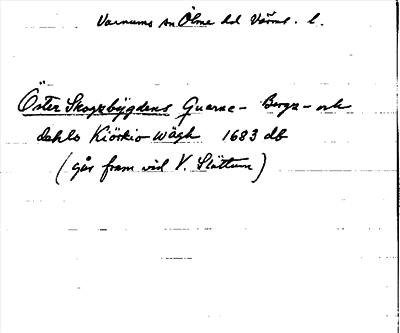 Varnums sn Ölme hd Värml. l.
Öster Skogzbÿgdens Quarne- Bergz- och
dahls Kiörkio wägh 1683 db
(går fram vid V. Slättum)